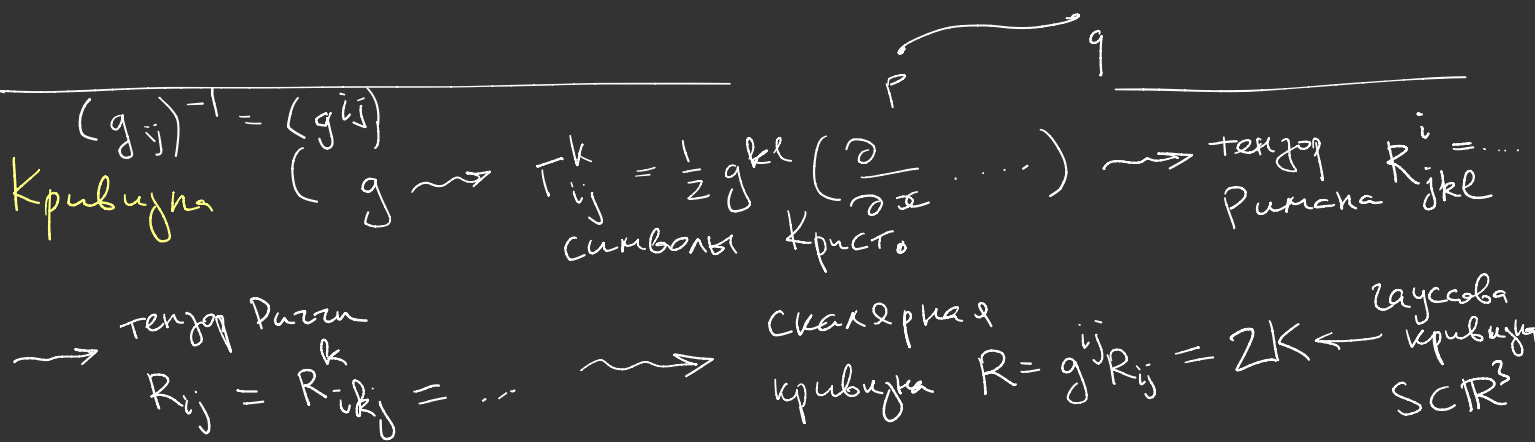 p q
(g_{ij})^{-1} = (g^{ij})
Кривизна ( g ⇝ Γ^k_{ij} = 1/2 g^{kl} ( ∂/∂x ..... ) ⇝ тензор Римана R^i_{jkl} = ....
символы Крист.
⇝ тензор Риччи
R_{ij} = R^k_{ikj} = ...
⇝ скалярная
кривизна R = g^{ij} R_{ij} = 2K ←
гауссова
кривизна
S⊂ℝ^3